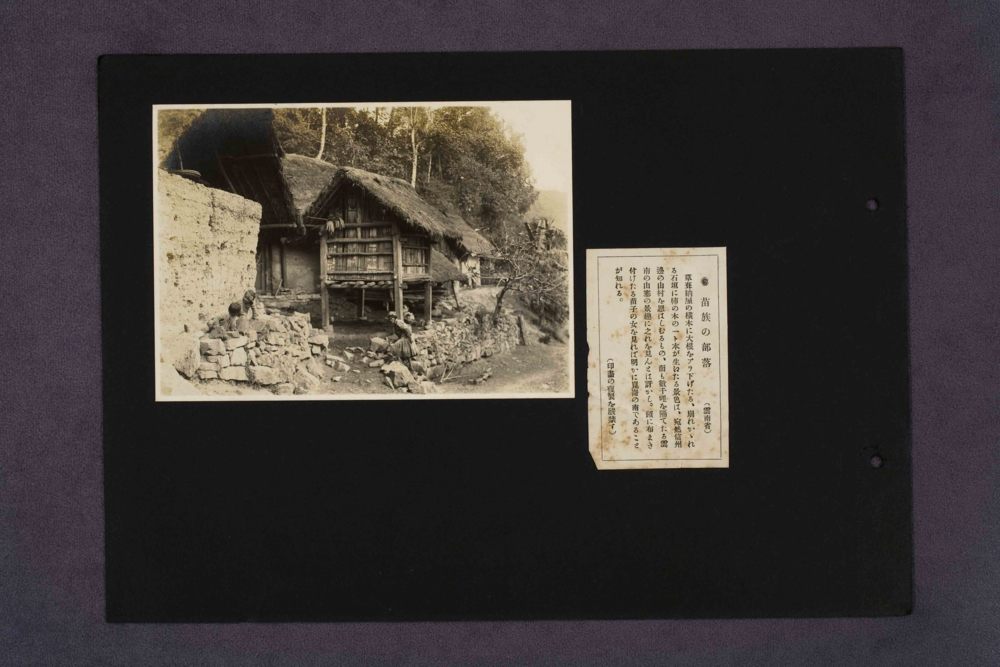 苗族の部落
（雲南省）
草葺納屋の横木に大根をブラ下げたる、崩れかゝれ
る石垣に柿の木の一ト本が生ひたる景色は、宛然信州
邊の山村を思はしむるもの、而も數千哩を隔てたる雲
南の山寨の景趣に之れを見んとは訝かし。頭に布まき
付けたる苗子の女を見れば明かに
の南であること
が知れる。
（印畫の複製を嚴禁す）